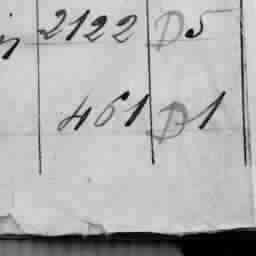 2122 D5
461 D1